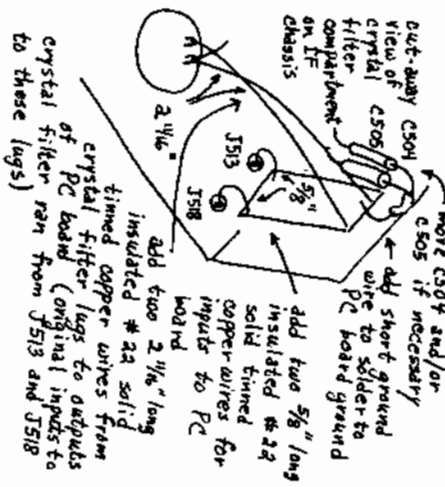 cut-away
view of
crystal
filter
compartment
on IF
chassis
C504
C505
move C504 and/or
C505 if necessary
add short ground
wire to solder to
PC board ground
2 11/16"
J513
5/8"
J518
add two 5/8" long
insulated #22
solid tinned
copper wires for
inputs to PC
board
add two 2 11/16" long
insulated #22 solid
tinned copper wires from
crystal filter lugs to outputs
of PC board (original inputs to
crystal filter ran from J513 and J518
to these lugs)